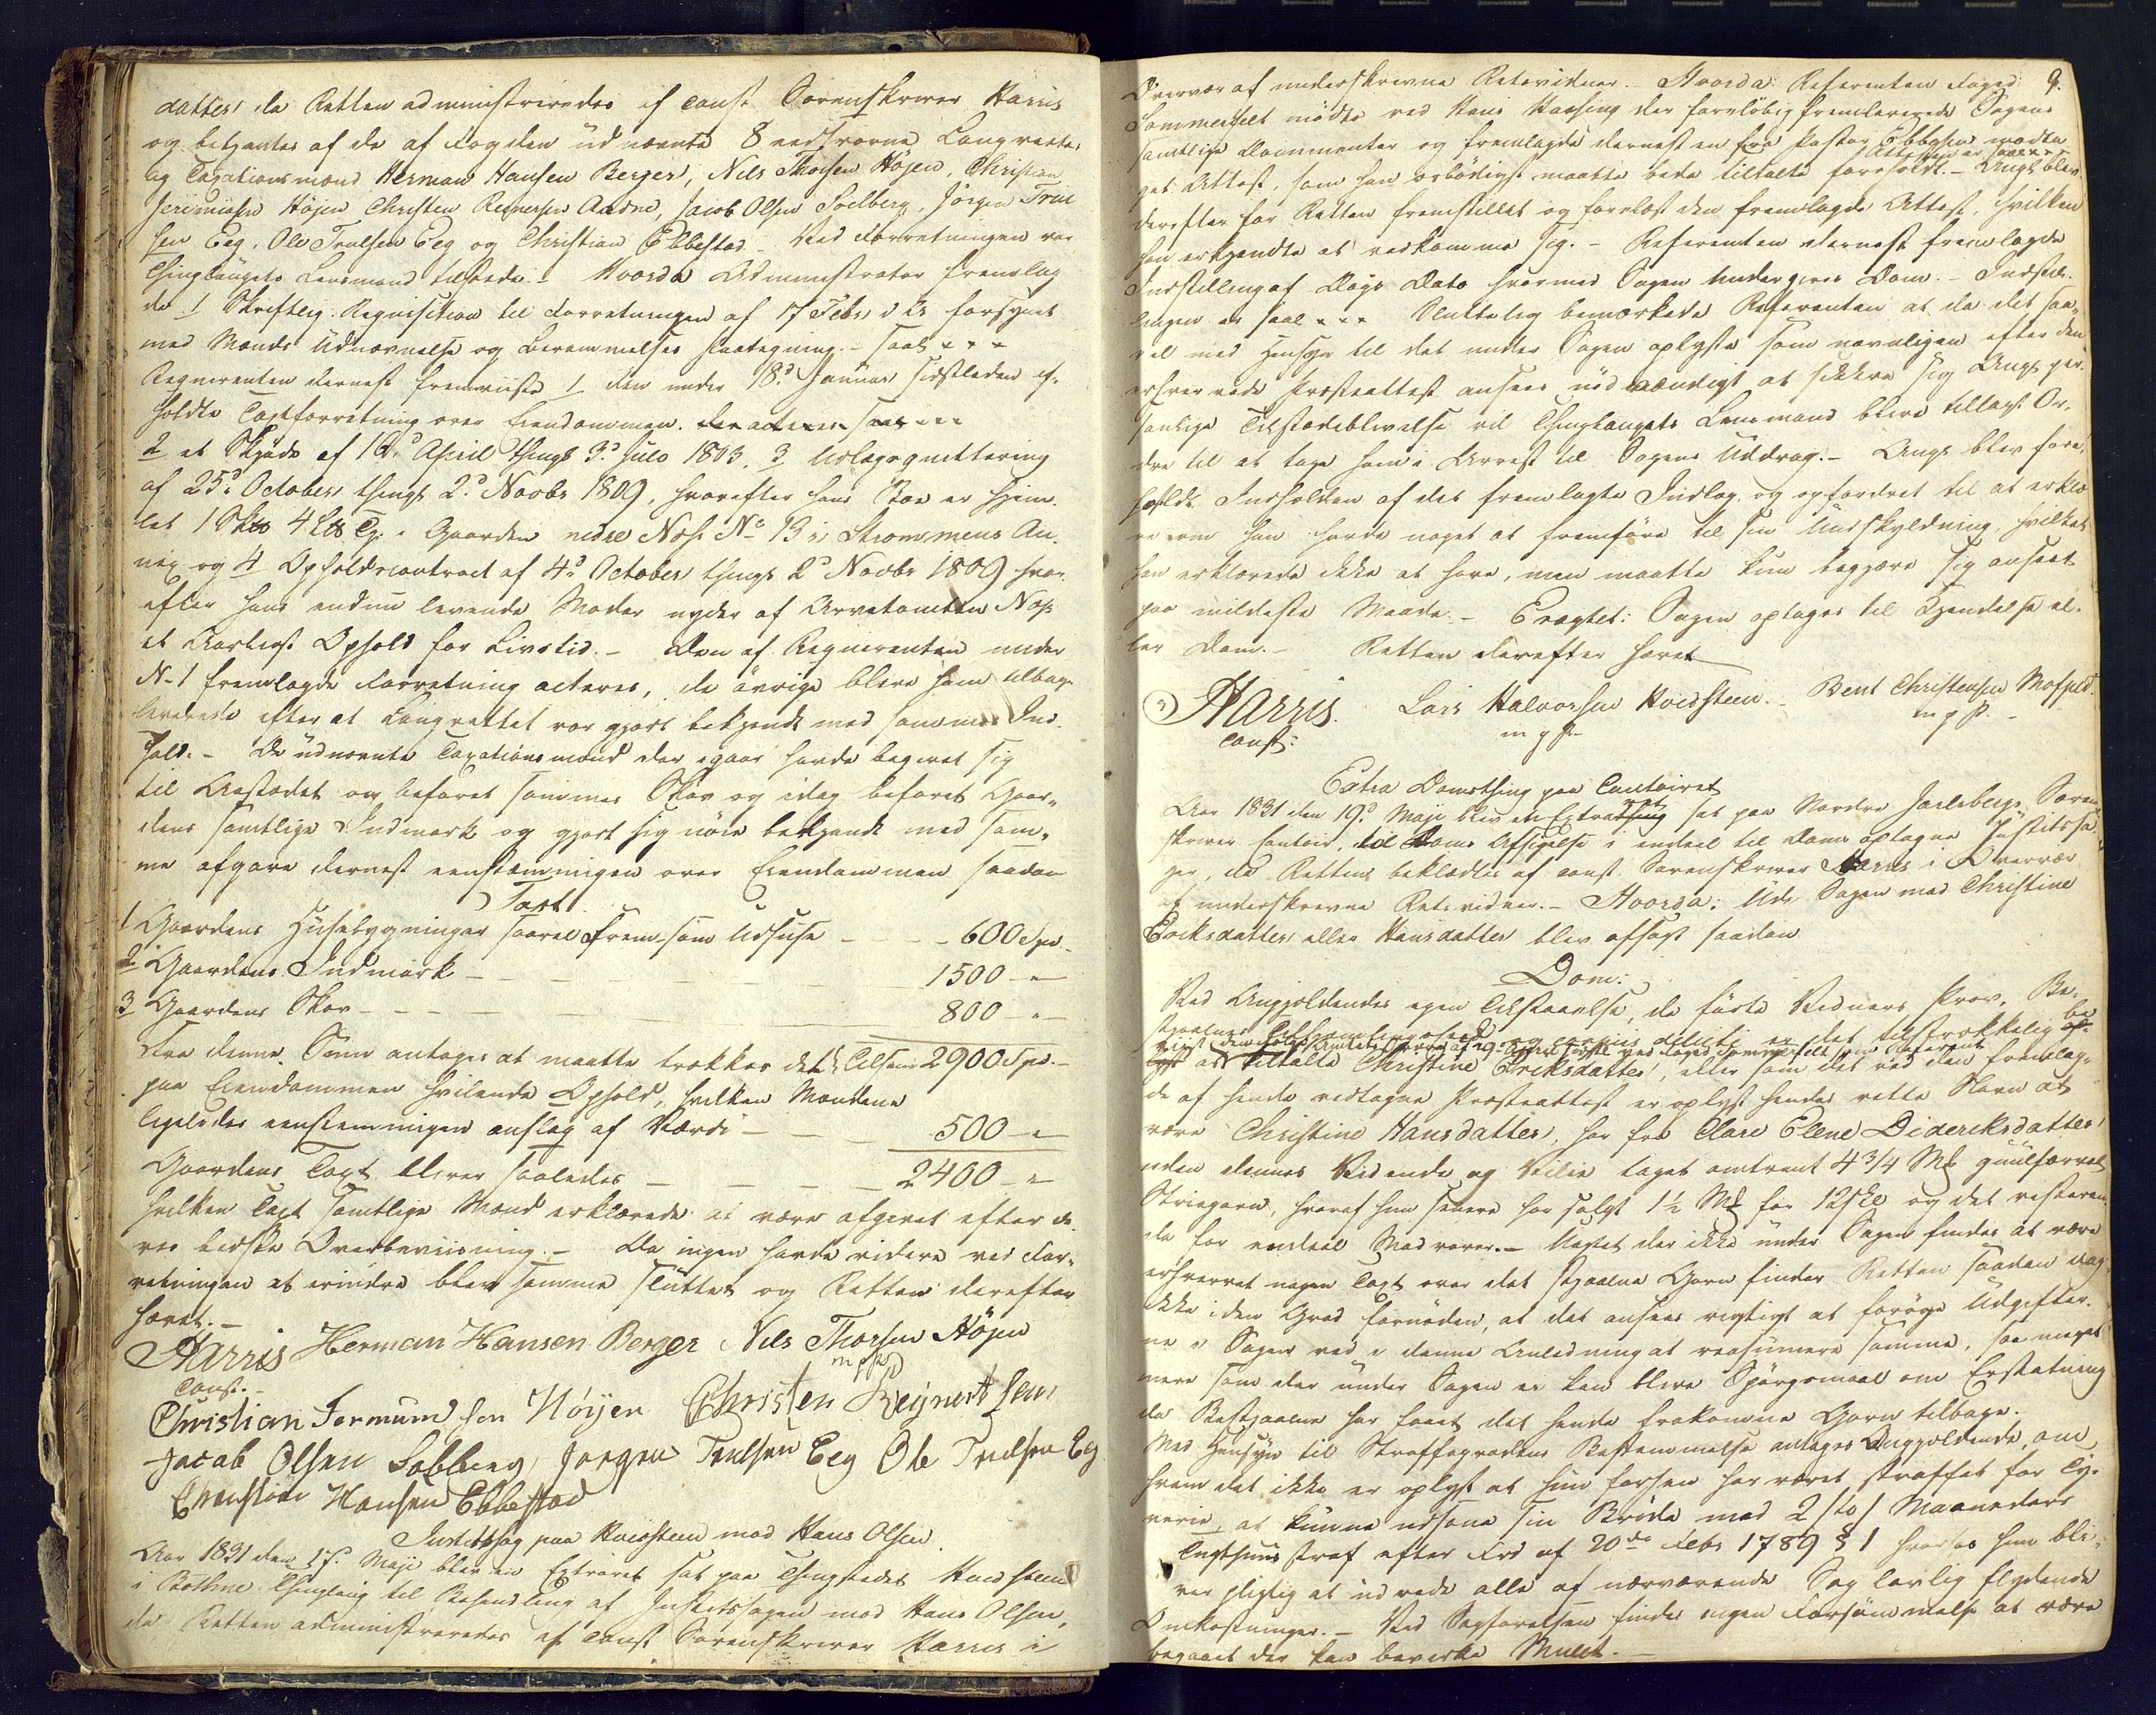 datter, da Retten administreredes af const Sorenskriver Harris
og betjentes af de af Fogden udnævnte 8 eedsvorne Laugrettes
og Taxationsmænd Herman Hansen Berger, Nils Thorsen Højen, Christian
Højen Christen Reinersen Aadne, Jacob Olsen Solberg, Jörgen Trul
sen Eeg, Ole Trulsen Eeg og Christian Ebbestad - Ved Forretningen var
Thinglaugets Lensmand tilstæde. - Hvorda Administrator fremlag
de 1 Skriftlig Requisition til Forretningen af 17 Febr d A forsynet
med Mænds Udnævnelse og Berammelses Paategning. - saal
Requirenten dernæst fremviiste 1 den under 18d Januar sidstleden af-
holdte Taxtforretning over Eiendommen.
2 et Skjøde af 10d April thingl 3d Juli 1803, 3 Udlægsquittering
af 25d October thingl 2d Novbr 1809, hvorefter hans Boe er hjem-
let 1 4 i Gaarden nedre Nos No 13 i Strømmens An-
nex og 4 Opholdscontract af 4d October thingl 2d Novbr 1809 hvor-
efter hans endnu levende Moder nyder af Arvetomten Nos
et Aarligt Ophold for Livstid. - Den af Requirenten under
N-1 fremlagde Forretning acteres, de øvrige bleve ham tilbage
leverede efter at Laugrettet var gjort bekjendt med sammes Ind-
hold. - De udnævnte Taxationsmænd der igaar havde begivet sig
til Aastædet og befaret sammes Skov og idag befaret Gaar-
dens samtlige Indmark og gjort sig nøie bekjendt med sam-
me afgave dernæst eenstemmigen over Eiendommen saadan
Taxt.
1 Gaardens Huusebygninger saavel Frem som Udhuse - - - 600 Spd.
2 Gaardens Indmark - - - 1500 - "
3 Gaardens Skov - - - 800 - "
Fra denne Sum antages at maatte trækkes det Tilsam 2900 Spd. -
paa Eiendommen hvilende Ophold, hvilken Mændene
ligeledes eenstemmigen anslog af Værdi - - - 500 - "
Gaardens Taxt bliver saaledes - - - 2400 - "
hvilken Taxt samtlige Mænd erklærede at være afgivet efter de-
res bedste Overbeviisning. - Da ingen havde videre ved For-
retningen at erindre blev samme sluttet og Retten derefter
hævet. -
Harris Herman Hansen Berger Nils Thorsen Højen
const. - m p P
Christian Højen Christen Reynertsen
Jacob Olsen Solberg Jørgen Trulsen Eeg Ole Trulsen Eg
Christian Hansen Ebbestad
Justitssag paa Hvidsteen mod Hans Olsen.
Aar 1831 den 17d Maji blev en Extraret sat paa Thingstedet Hvidsteen
i Bothne Thinglaug til Behandling af Justitssagen mod Hans Olsen,
da Retten administreredes af const Sorenskriver Harris i
9.
Overvær af underskrevne Retsvidner. - Hvorda: Referenten Foged
Sommerfelt mødte ved Hans Haasing der foreløbig fremleverede Sagens
samtlige Documenter og fremlagde dernæst en fra Pastor Ebbesen modta
Attesten er saal
get Attest, som han ærbødigst maatte bede tiltalte foreholdt. - Angl blev
derefter for Retten fremstillet og forelæst den fremlagde Attest, hvilken
han erkjendte at vedkomme sig. - Referenten dernæst fremlagde
Indstilling af Dags Dato hvormed Sagen undergives Dom. - Indstil-
lingen er saal Mundtlig bemærkede Referenten at da det saa-
vel med Hensyn til det under Sagen oplyste som navnligen efter den
erhvervede Præsteattest ansees nødvændigt at sikkre sig Angs per-
sonlige Tilstædeblivelse vil Thinglaugets Lensmand blive tillagt Or-
dre til at tage ham i Arrest til Sagens Uddrag. - Angl blev fore-
holdt Indholdet af det fremlagte Indlæg og opfordret til at erklæ
re om han havde noget at fremføre til sin Undskyldning, hvilket
han erklærede ikke at have, men maatte kun begjære sig anseet
paa mildeste Maade. - Eragtet: Sagen optages til Kjendelse el-
ler Dom. - Retten derefter hævet
Harris. Lars Halvorsen Hvidsteen. - Bent Christensen
const: m p P m p P -
Extra Domsthing paa Contoiret
Aar 1831 den 19d Maji blev en Extraret sat paa Nordre Jarlsbergs Soren
skriver Contoir, til Doms Afsigelse i endeel til Doms optagne Justitssa-
ger, da Retten beklædtes af const Sorenskriver Harris i Overvær
af underskrevne Retsvidner. - Hvorda: Udi Sagen mod Christine
Eriksdatter eller Hansdatter blev afsagt saadan
Dom:
Ved Angjældendes egen Tilstaaelse, de førte Vidners Prov, Be-
stjaalnes
og corpus delicti er det tilstrækkelig be
at tiltalte Christine Eriksdatter, eller som det ved den fremlag-
de af hende vedtagne Præsteattest er oplyst hendes rette Navn at
være Christine Hansdatter, har fra Clare Elene Dideriksdatter
uden dennes Vidende og Villie taget omtrent 4 3/4 Mk guulfarvet
Striegarn, hvoraf hun senere har solgt 1 1/2 Mk for 12 s og det resteren
de for endeel Madvarer. - Uagtet der ikke under Sagen findes at være
erhvervet nogen Taxt over det stjaalne Garn finder Retten saadan dog
ikke i den Grad fornøden, at det ansees rigtigt at forøge Udgifter-
ne i Sagen ved i denne Anledning at reassumere samme, saa meget
mere som der under Sagen ei kan blive Spørgsmaal om Erstatning
da Bestjaalne har faaet det hende frakomne Garn tilbage.
Med Hensyn til Straffegradens Bestemmelse antages Angjældende, om
hvem det ikke er oplyst at hun forhen har været straffet for Ty-
verie, at kunne udsone sin Brøde med 2 /to/ Maaneders
Tugthuusstraf efter Frd af 20de Febr 1789 § 1 hvorhos hun bli-
ver pligtig at udrede alle af nærværende Sag lovlig flydende
Omkostninger. - Ved Sagførelsen findes ingen Forsømmelse at være
begaaet der kan bevirke Mulct. -